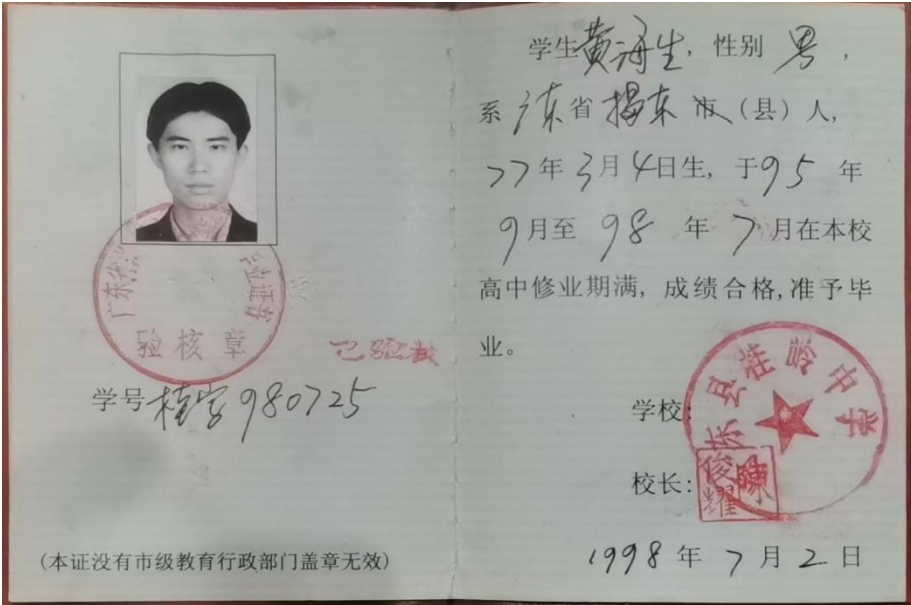 广东省
验核章
已验核
学号桂字980725
(本证没有市级教育行政部门盖章无效)
学生黄海生，性别 男，
系广东省揭东市（县）人，
77年3月4日生，于95年
9月至98年7月在本校
高中修业期满，成绩合格,准予毕
业。
东县桂岭中学
学校:
校长:
陈俊耀
1998年7月2日